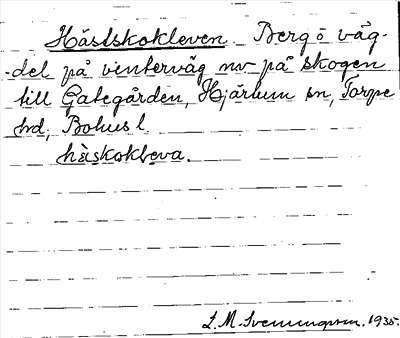 Hästskokleven Berg o väg-
-del på vinterväg nv på skogen
till Gategården, Hjärtum sn, Torpe
hd, Bohus l.
hàskokleva.
L. M. Svenungsson. 1935.